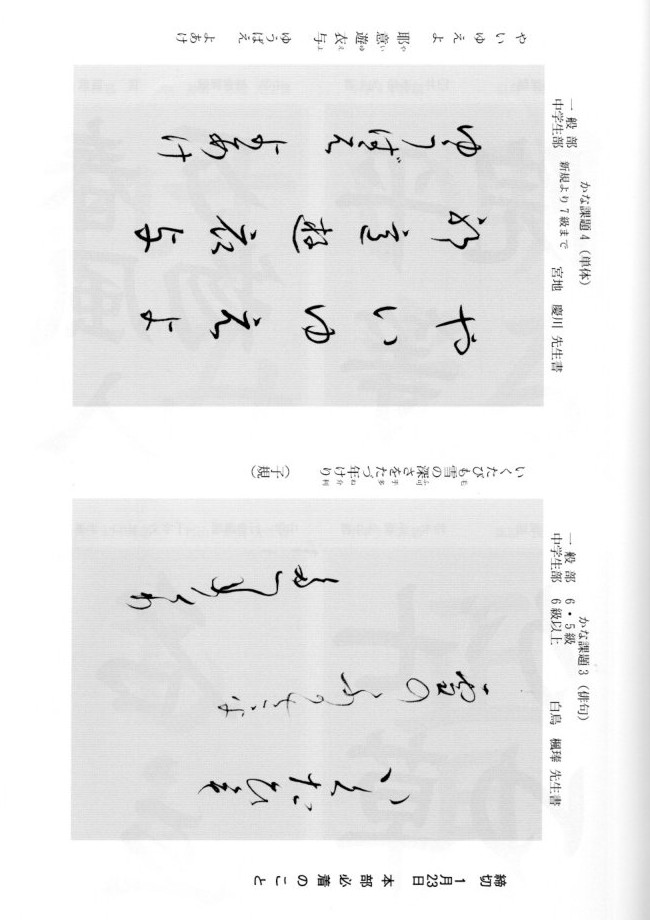 かな課題4(単体)
一般部
中学生部
新規より7級まで
宮地 慶川 先生書
や い ゆ え よ
耶 意 遊 衣 与
や い ゆ え よ
ゆうばえ
よあけ
や い ゆ え よ
耶 意 遊 衣 与
ゆうばえ よあけ
かな課題3(俳句)
一般部 6・5級
中学生部 6級以上
先生書
いくたびも雪の深さをたづ年けり (子規)
締切 1月23日 本部必着のこと